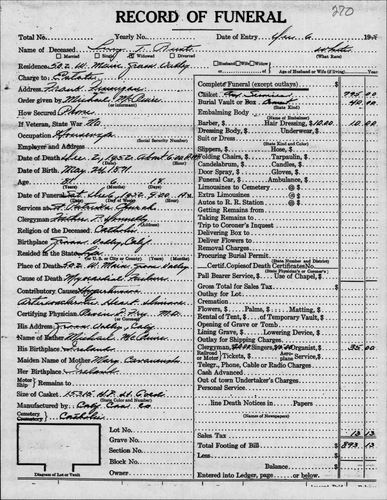 RECORD OF FUNERAL
270
Total No. Yearly No. Date of Entry 6, 19
Name of Deceased White
Married Single Widowed Divorced (What Race)
Residence 522 W. Main, Grass Valley Husband Wife
Age of Husband or Wife (if living) Years
Charge to Estate
Address Frank Finnegan
Order given by Michael McGuire
(or informant)
How Secured Phone
If Veteran, State War No
Occupation Housewife
(Social Security Number)
Employer and Address
Date of Death 2, 1952
Date of Birth May 24, 1871
Age
Date of Funeral
Services at St. Patrick's Church
Clergyman Father
Religion of the Deceased Catholic
Birthplace Grass Valley, Calif.
Resided in the State
Place of Death 522 W. Main, Grass Valley
Cause of Death Myocardial Failure
Contributory Causes Hypertension
Arteriosclerotic Heart Disease
Certifying Physician M.D.
His Address Grass Valley, Calif.
Name of Father Michael McGuire
His Birthplace Ireland
Maiden Name of Mother Mary Cavanaugh
Her Birthplace Ireland
Motor Ship Remains to
Size of Casket
(State Color and Number)
Manufactured by
Cemetery
Crematory Catholic
Lot No.
Grave No.
Section No.
Block No.
Owner
Diagram of Lot or Vault
Complete Funeral (except outlays)
Casket 795.00
Burial Vault or Box 40.00
Embalming Body
(State Kind)
Barber, Hair Dressing, 10.00 10.00
Dressing Body, Underwear,
Suit or Dress
(State Kind and Color)
Slippers, Hose,
Folding Chairs, Tarpaulin,
Candelabrum, Candles,
Door Spray, Gloves,
Funeral Car, Ambulance,
Limousines to Cemetery @
Extra Limousines @
Autos to R. R. Station @
Getting Remains from
Taking Remains to
Trip to Coroner's Inquest
Delivering Box to
Deliver Flowers to
Removal Charges
Procuring Burial Permit
(State Number and District)
Certif. Copies of Death Certificates No.
(State Physician's or Coroner's)
Pall Bearer Service, Use of Chapel,
Gross Total for Sales Tax
Outlay for Lot
Cremation
Flowers, Palms, Matting,
Rental of Tent, of Temporary Vault,
Opening of Grave or Tomb
Lining Grave, Lowering Device,
Outlay for Shipping Charges
Clergyman, Singers, Organist, 35.00
Railroad
Motor Tickets, Aeroplane Service,
Telegr., Phone, Cable or Radio Charges
Cash Advanced
Out of town Undertaker's Charges
Personal Service
line Death Notices in Papers
(Names of Newspapers)
Sales Tax 13 13
Total Footing of Bill 893.13
Less
Balance
Entered into Ledger, page or below.